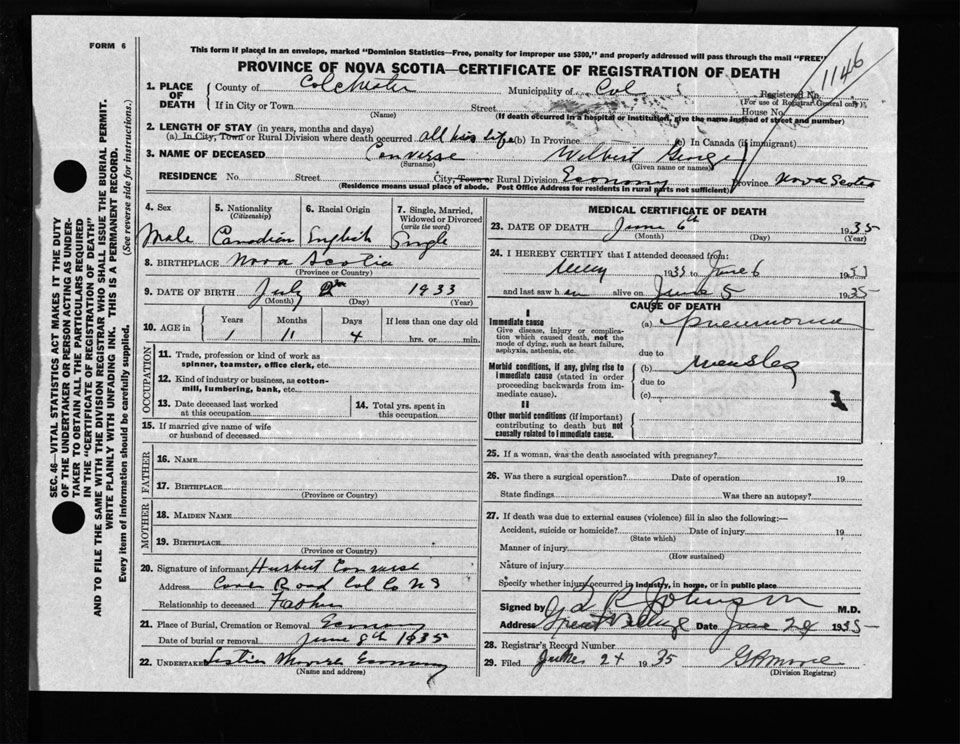 FORM 6
This form if placed in an envelope, marked "Dominion Statistics—Free, penalty for improper use $300," and properly addressed will pass through the mail "FREE"
PROVINCE OF NOVA SCOTIA—CERTIFICATE OF REGISTRATION OF DEATH
1146
1. PLACE OF DEATH
County of Colchester Municipality of Col Registered No.
(For use of Registrar General only)
If in City or Town Street House No.
(Name) (If death occurred in a hospital or institution, give the name instead of street and number)
2. LENGTH OF STAY (in years, months and days)
(a) In City, Town or Rural Division where death occurred all his life (b) In Province (c) In Canada (if immigrant)
3. NAME OF DECEASED Converse Wilbert George
(Surname) (Given name or names)
RESIDENCE No. Street City, Town or Rural Division Economy Province Nova Scotia
(Residence means usual place of abode. Post Office Address for residents in rural parts not sufficient)
4. Sex 5. Nationality (Citizenship) 6. Racial Origin 7. Single, Married, Widowed or Divorced (write the word)
Male Canadian English Single
8. BIRTHPLACE Nova Scotia
(Province or Country)
9. DATE OF BIRTH July 2 1933
(Month) (Day) (Year)
10. AGE in Years Months Days If less than one day old
1 11 4 hrs. or min.
OCCUPATION
11. Trade, profession or kind of work as spinner, teamster, office clerk, etc.
12. Kind of industry or business, as cotton-mill, lumbering, bank, etc.
13. Date deceased last worked at this occupation
14. Total yrs. spent in this occupation
15. If married give name of wife or husband of deceased
FATHER
16. NAME
17. BIRTHPLACE
(Province or Country)
MOTHER
18. MAIDEN NAME
19. BIRTHPLACE
(Province or Country)
20. Signature of informant Hurbert Converse
Address Cove Road Col Co NS
Relationship to deceased Father
21. Place of Burial, Cremation or Removal Economy
Date of burial or removal June 8th 1935
22. UNDERTAKER Economy
(Name and address)
MEDICAL CERTIFICATE OF DEATH
23. DATE OF DEATH June 6th 1935
(Month) (Day) (Year)
24. I HEREBY CERTIFY that I attended deceased from:
1935 to June 6 1935
and last saw h im alive on June 5 1935
CAUSE OF DEATH
I
Immediate cause
Give disease, injury or complication which caused death, not the mode of dying, such as heart failure, asphyxia, asthenia, etc.
(a) pneumonia
due to
Morbid conditions, if any, giving rise to immediate cause (stated in order proceeding backwards from immediate cause).
(b) measles
due to
(c)
II
Other morbid conditions (if important) contributing to death but not causally related to immediate cause.
25. If a woman, was the death associated with pregnancy?
26. Was there a surgical operation? Date of operation 19
State findings Was there an autopsy?
27. If death was due to external causes (violence) fill in also the following:—
Accident, suicide or homicide? Date of injury 19
(State which)
Manner of injury
(How sustained)
Nature of injury
Specify whether injury occurred in industry, in home, or in public place
Signed by T R Johnson M.D.
Address Great Village Date June 24 1935
28. Registrar's Record Number
29. Filed June 24 1935 G R Moore
(Division Registrar)
SEC. 46—VITAL STATISTICS ACT MAKES IT THE DUTY
OF THE UNDERTAKER OR PERSON ACTING AS UNDER-
TAKER TO OBTAIN ALL THE PARTICULARS REQUIRED
IN THE "CERTIFICATE OF REGISTRATION OF DEATH"
AND TO FILE THE SAME WITH THE DIVISION REGISTRAR WHO SHALL ISSUE THE BURIAL PERMIT.
WRITE PLAINLY WITH UNFADING INK. THIS IS A PERMANENT RECORD.
Every item of information should be carefully supplied. (See reverse side for instructions.)